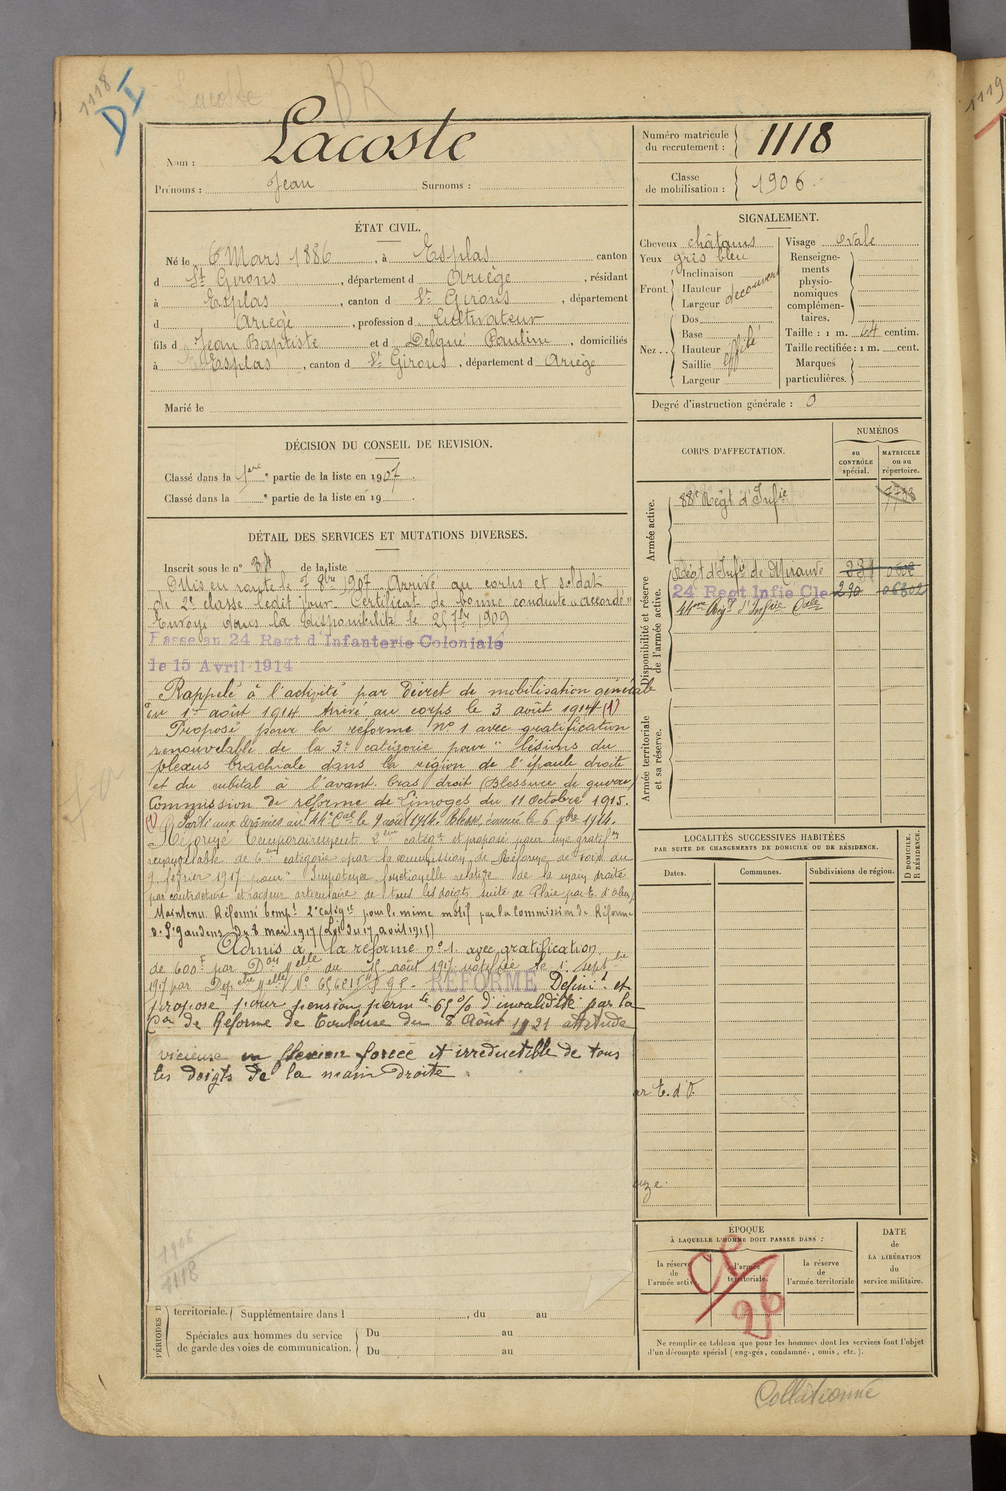 1118
DI
Lacoste
BR
1119
Nom : Lacoste
Prénoms : Jean Surnoms :
Numéro matricule du recrutement : 1118
Classe de mobilisation : 1906.
ÉTAT CIVIL.
Né le 6 Mars 1886, à Esplas canton
d St Girons, département d Ariège, résidant
à Esplas, canton d St Girons, département
d Ariège, profession d Cultivateur
fils d Jean Baptiste et d Delqué Pauline, domiciliés
à Esplas, canton d St Girons, département d Ariège
Marié le
SIGNALEMENT.
Cheveux châtains
Yeux gris bleu
Front. Inclinaison
Hauteur
Largeur
découvert
Nez .. Dos
Base
Hauteur
Saillie
Largeur
effilé
Visage ovale
Renseignements physionomiques complémentaires.
Taille : 1 m. 64 centim.
Taille rectifiée : 1 m. cent.
Marques particulières.
Degré d'instruction générale : 0
DÉCISION DU CONSEIL DE REVISION.
Classé dans la 1ere partie de la liste en 1907.
Classé dans la e partie de la liste en 19
DÉTAIL DES SERVICES ET MUTATIONS DIVERSES.
Inscrit sous le n° 31 de la liste
Mis en route le 7 8bre 1907. Arrivé au corps et soldat
de 2e classe ledit jour. Certificat de bonne conduite "accordé"
Envoyé dans la disponibilité le 25 7bre 1909
Passe au 24 Regt d'Infanterie Coloniale
le 15 Avril 1914
Rappelé à l'activité par Décret de mobilisation générale
du 1er août 1914 Arrivé au corps le 3 août 1914 (1)
Proposé pour la réforme N° 1 avec gratification
renouvelable de la 3e catégorie pour "lésions du
plexus brachiale dans la région de l'épaule droite
et du cubital à l'avant-bras droit (Blessure de guerre)
Commission de réforme de Limoges du 11 octobre 1915.
(1) Parti aux armées au 44e Cal le 9 août 1914. Blessé évacué le 6 7bre 1914.
Réformé Temporairement 2eme catégie et proposé pour une gratifon
renouvelable de 6me catégorie par la commission de Réforme de Foix du
9 février 1917 pour "Impotence fonctionnelle relative de la main droite
par contracture et raideur articulaire de tous les doigts suite de Plaie par E. d'obus
Maintenu Réformé tempe 2e catégie pour le même motif par la Commission de Réforme
de St Gaudens du 8 mai 1917 (Loi du 17 août 1915)
Admis à la réforme n° 1 avec gratification
de 600F par Don Melle du août 1917 notifiée le 1er septbre
1917 par Dep N°
RÉFORME
Définit et
proposé pour pension perm te 65% d'invalidité par la
Con de Réforme de Toulouse du 8 Août 1921 attitude
vicieuse en flexion forcée et irréductible de tous
les doigts de la main droite.
CORPS D'AFFECTATION.
NUMÉROS
au CONTRÔLE spécial.
MATRICULE ou au répertoire.
Armée active.
88e Régt d'Infie
1118
Disponibilité et réserve de l'armée active.
Régt d'Infie de Mirande 0608
24 Regt Infie Cle 290 06802
44me Régt d'Infrie Cale
Armée territoriale et sa réserve.
LOCALITÉS SUCCESSIVES HABITÉES
PAR SUITE DE CHANGEMENTS DE DOMICILE OU DE RÉSIDENCE.
Dates.
Communes.
Subdivisions de région.
D DOMICILE.
R RÉSIDENCE.
ÉPOQUE
À LAQUELLE L'HOMME DOIT PASSER DANS :
la réserve de l'armée active
l'armée territoriale.
la réserve de l'armée territoriale
DATE de LA LIBÉRATION du service militaire.
CP
26
1906
1118
PÉRIODES D
territoriale. Supplémentaire dans l , du au
Spéciales aux hommes du service de garde des voies de communication.
Du au
Du au
Ne remplir ce tableau que pour les hommes dont les services font l'objet
d'un décompte spécial (engagés, condamnés, omis, etc.).
Collationné